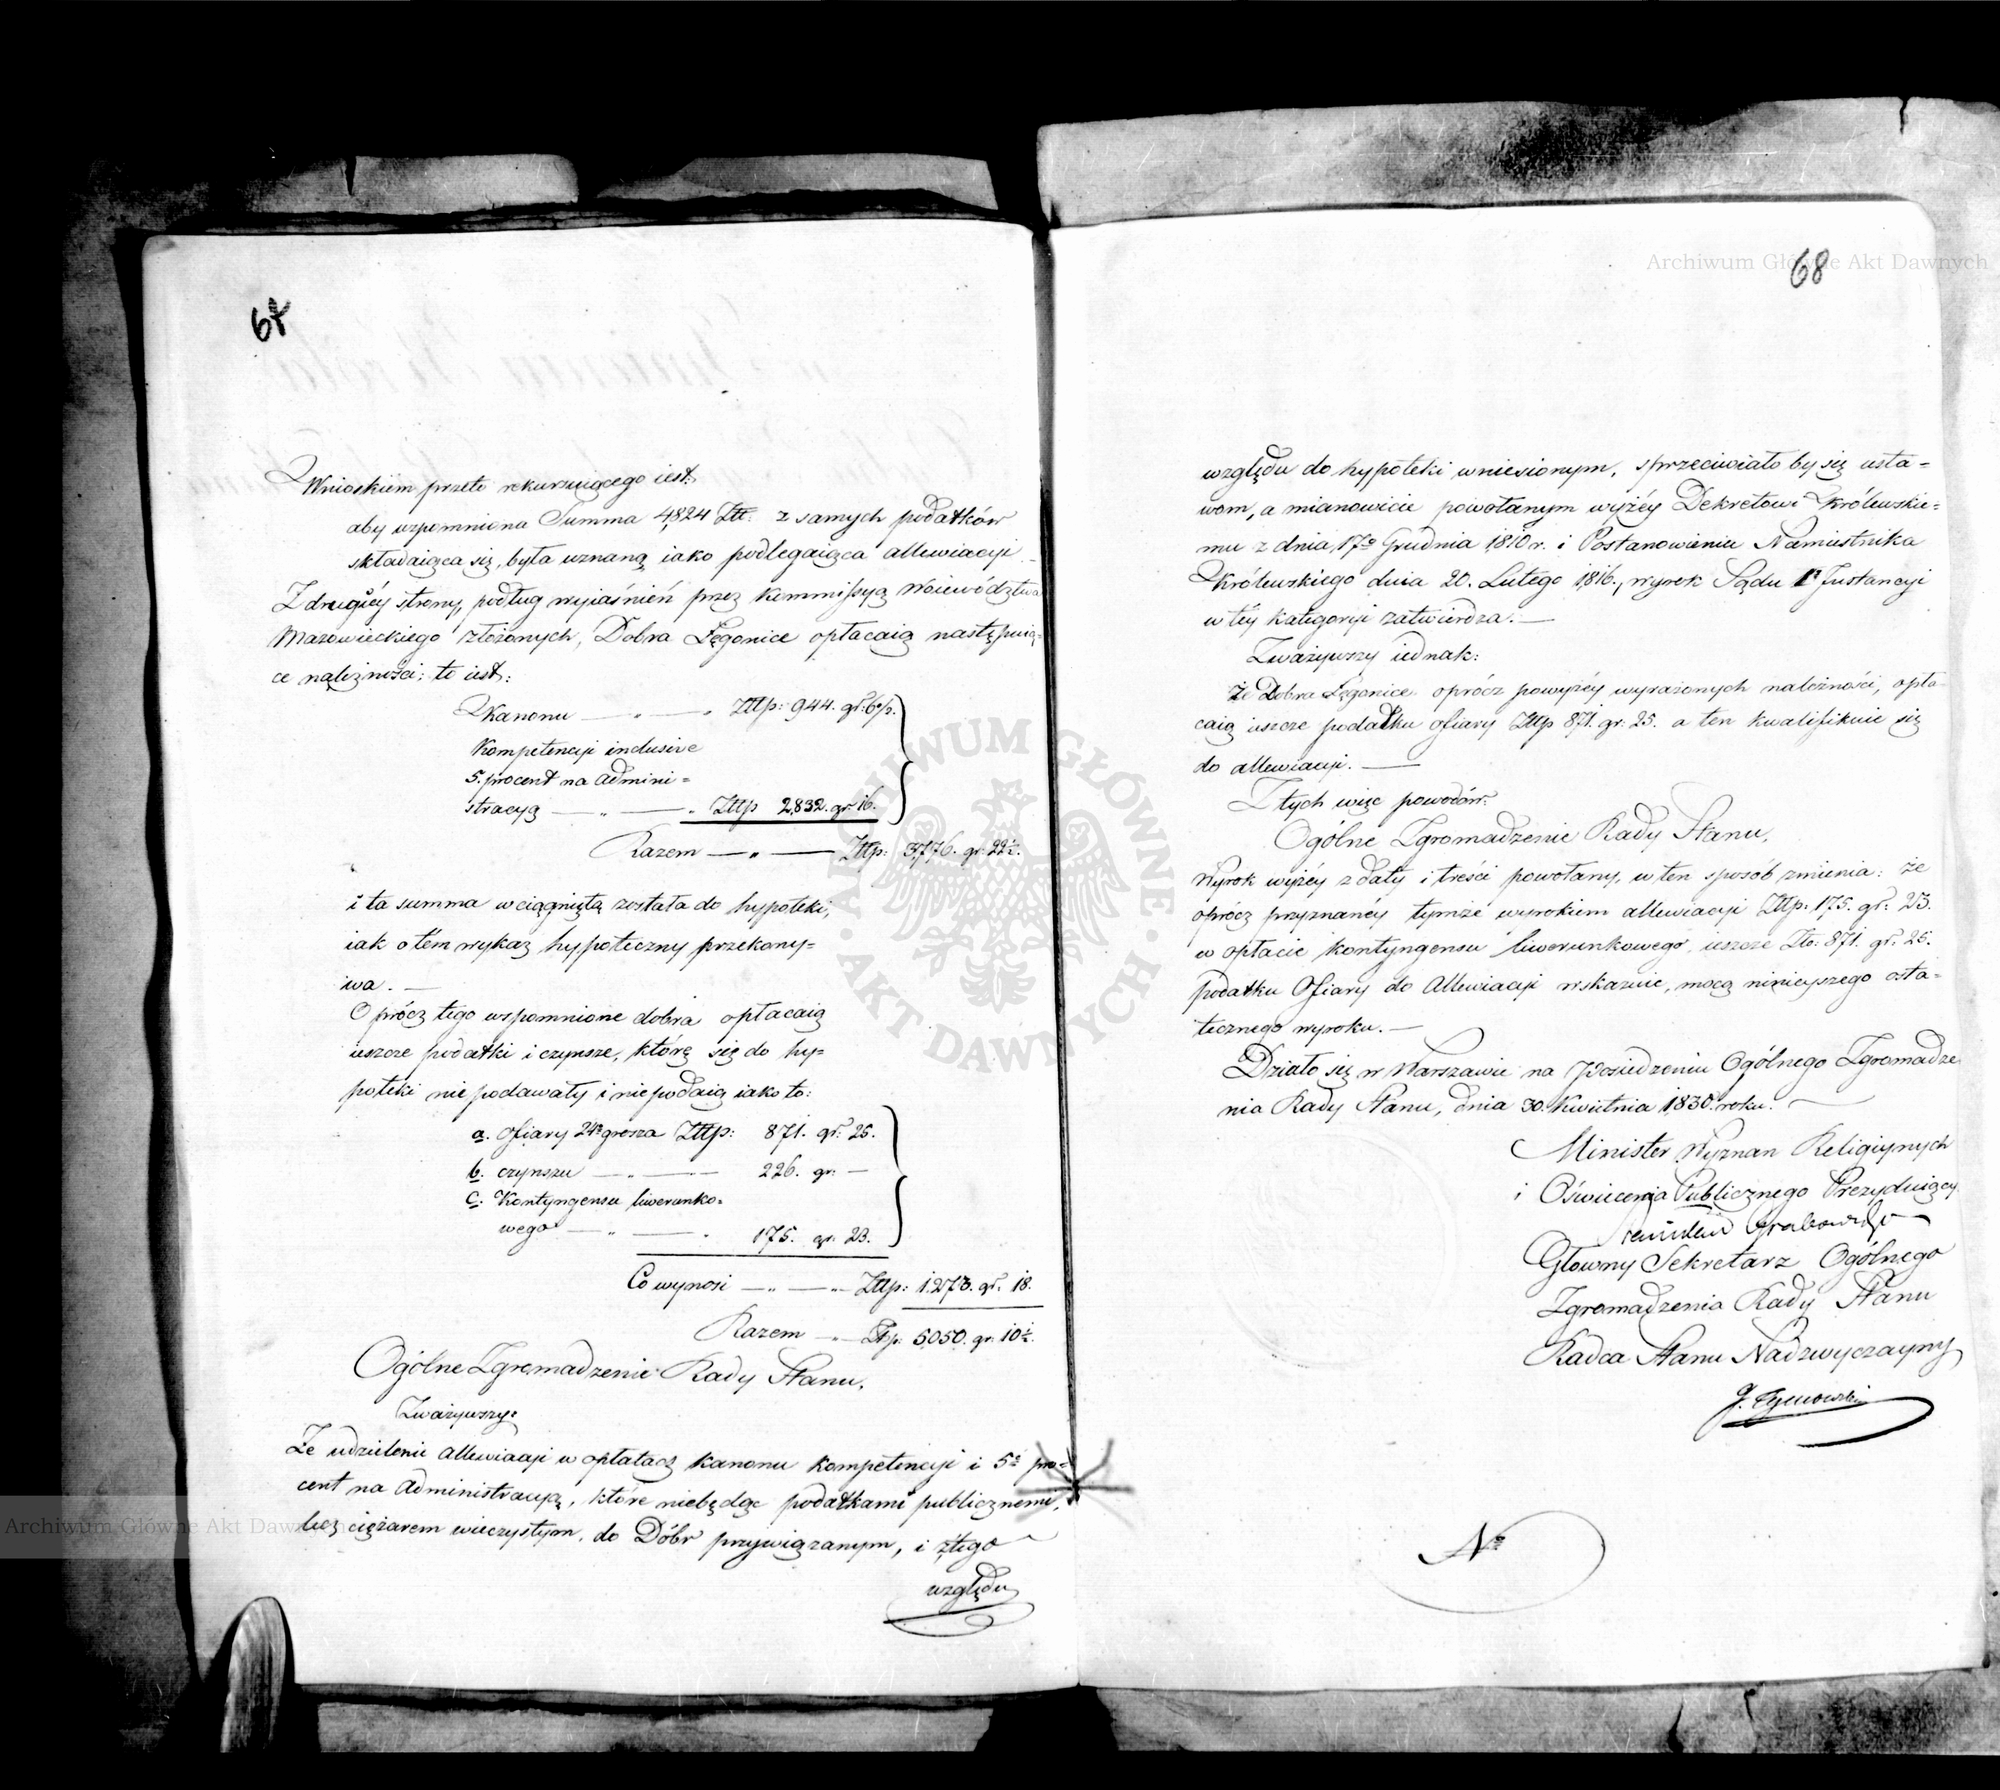 67
Wnioskiem przeto rekuruiącego iest:
aby wzpomniona Summa 4,824 Ztt: z samych podatków
składaiąca się, była uznaną iako podlegaiąca allewiacyi
Z drugiéy strony, podług wyiaśnień przez Kommissyą Woiewództwa
Mazowieckiego złożonych, Dobra Łęgonice opłacaią następuią=
ce należności; to iest:
Kanonu — „ — „ Zttp: 944. gr. 6½.
Kompetencyi inclusive
5. procent na admini=
stracyą — „ — „ Zttp 2,832. gr 16.
Razem — „ — Zttp: 3,776. gr. 22½.
i ta summa wciągniętą została do hypoteki,
iak o tém wykaz hypoteczny przekony=
wa. —
Oprócz tego wspomnione dobra opłacaią
ieszcze podatki i czynsze, któré się do hy=
poteki nie podawały i nie podaią iako to:
a. Ofiary 24o grosza Zttp: 871. gr. 25.
b. czynszu — „ — 226. gr. —
c. Kontyngensu liwerunko=
wego — „ — „ 175. gr 23.
Co wynosi — „ — „ — Zttp: 1.273. gr. 18.
Razem — „ — Ztp. 5050. gr. 10½.
Ogólne Zgromadzenie Rady Stanu,
Zważywszy:
Że udzielenie allewiacyi w opłatach kanonu kompetencyi i 5o pro=
cent na administracyą, które niebędąc podatkami publicznemi,
lecz ciężarem wieczystym, do Dóbr przywiązanym, i z tego
względu
68
względu do hypoteki wniesionym, sprzeciwiało by się usta=
wom, a mianowicie powołanym wyżéy Dekretowi Królewskie=
mu z dnia 17o Grudnia 1810 r. i Postanowieniu Namiestnika
Królewskiego dnia 20. Lutego 1816., wyrok Sądu 1ey Instancyi
w téy kategoryi zatwierdza. —
Zważywszy iednak:
że Dobra Łęgonice oprócz powyżéy wyrażonych należności, opła=
caią ieszcze podatku ofiary Zttp 871. gr. 25. a ten kwalifikuie się
do allewiacyi. —
Z tych więc powodów:
Ogólne Zgromadzenie Rady Stanu,
Wyrok wyżéy z daty i treści powołany, w ten sposób zmienia: że
oprócz przyznanéy tymże wyrokiem allewiacyi Zttp: 175. gr. 23.
w opłacie kontyngensu liwerunkowego, ieszcze Zło: 871. gr. 25.
podatku Ofiary do Allewiacyi wskazuie, mocą ninieyszego osta=
tecznego wyroku. —
Działo się w Warszawie na Posiedzeniu Ogólnego Zgromadze
nia Rady Stanu, dnia 30. Kwietnia 1830. roku. —
Minister Wyznan Religiynych
i Oświecenia Publicznego Prezyduiący
Grabowski
Główny Sekretarz Ogólnego
Zgromadzenia Rady Stanu
Radca Stanu Nadzwyczayny
J. Tymowski
No
ARCHIWUM GŁÓWNE
AKT DAWNYCH
Archiwum Główne Akt Dawnych
Archiwum Główne Akt Dawnych